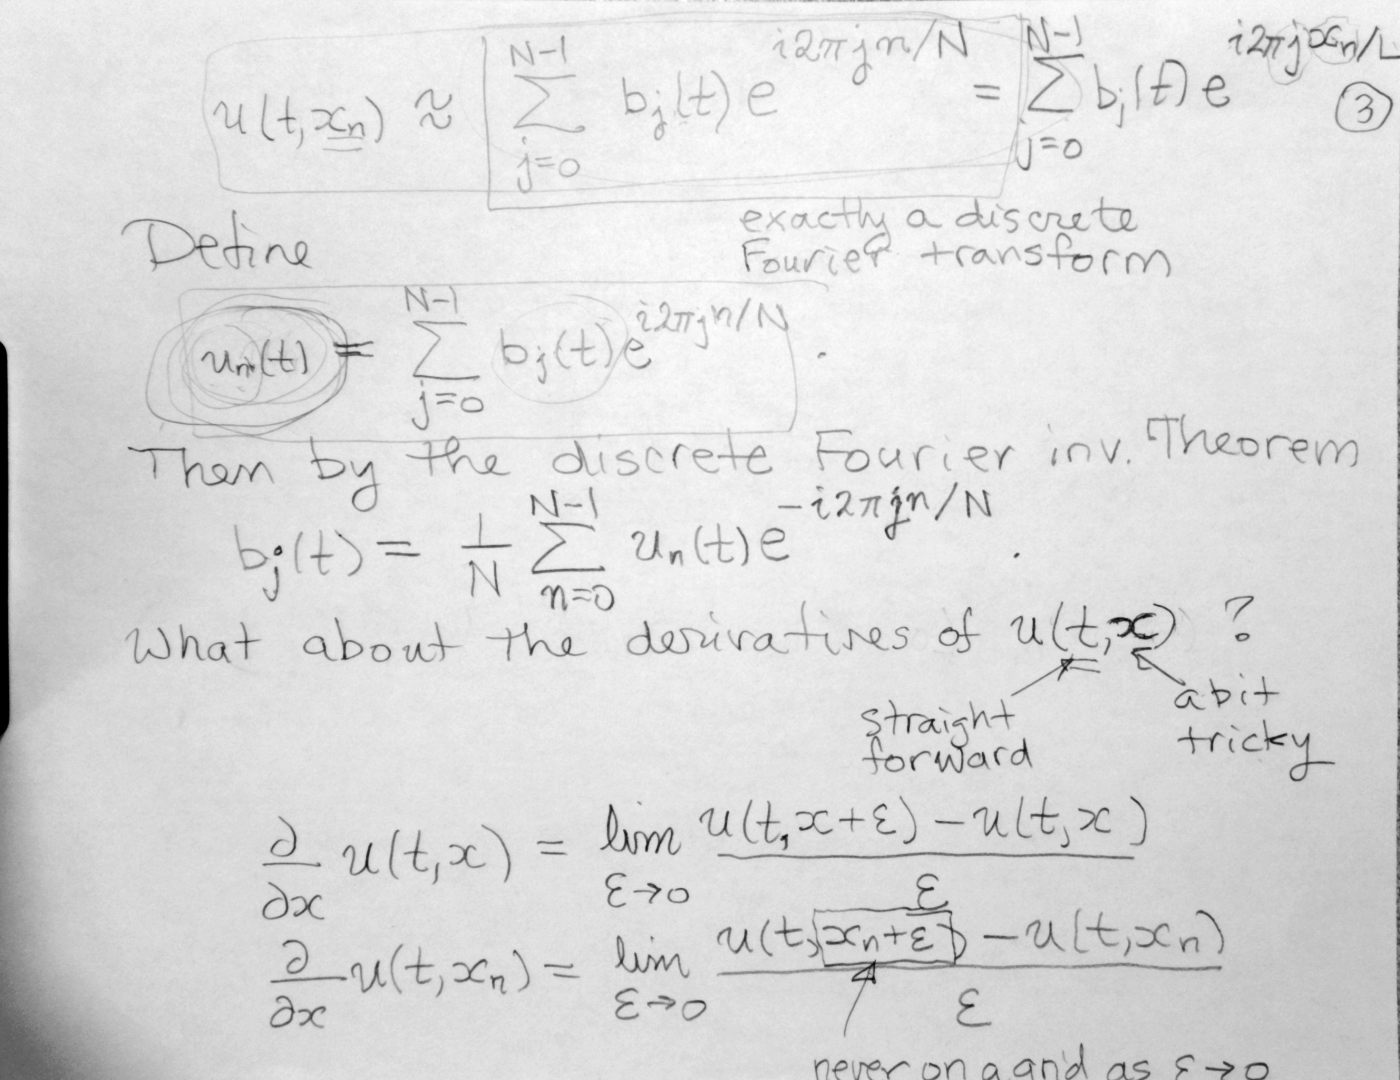 u(t,xₙ) ≈ ∑_{j=0}^{N-1} bⱼ(t) e^{i2πjn/N} = ∑_{j=0}^{N-1} bⱼ(t) e^{i2πjxₙ/L}
③
exactly a discrete
Fourier transform
Define
uₙ(t) = ∑_{j=0}^{N-1} bⱼ(t) e^{i2πjn/N} .
Then by the discrete Fourier inv. Theorem
bⱼ(t) = 1/N ∑_{n=0}^{N-1} uₙ(t) e^{-i2πjn/N} .
What about the derivatives of u(t,x) ?
straight
forward
a bit
tricky
∂/∂x u(t,x) = lim_{ε→0} (u(t,x+ε) - u(t,x))/ε
∂/∂x u(t,xₙ) = lim_{ε→0} (u(t,xₙ+ε) - u(t,xₙ))/ε
never on a grid as ε→0